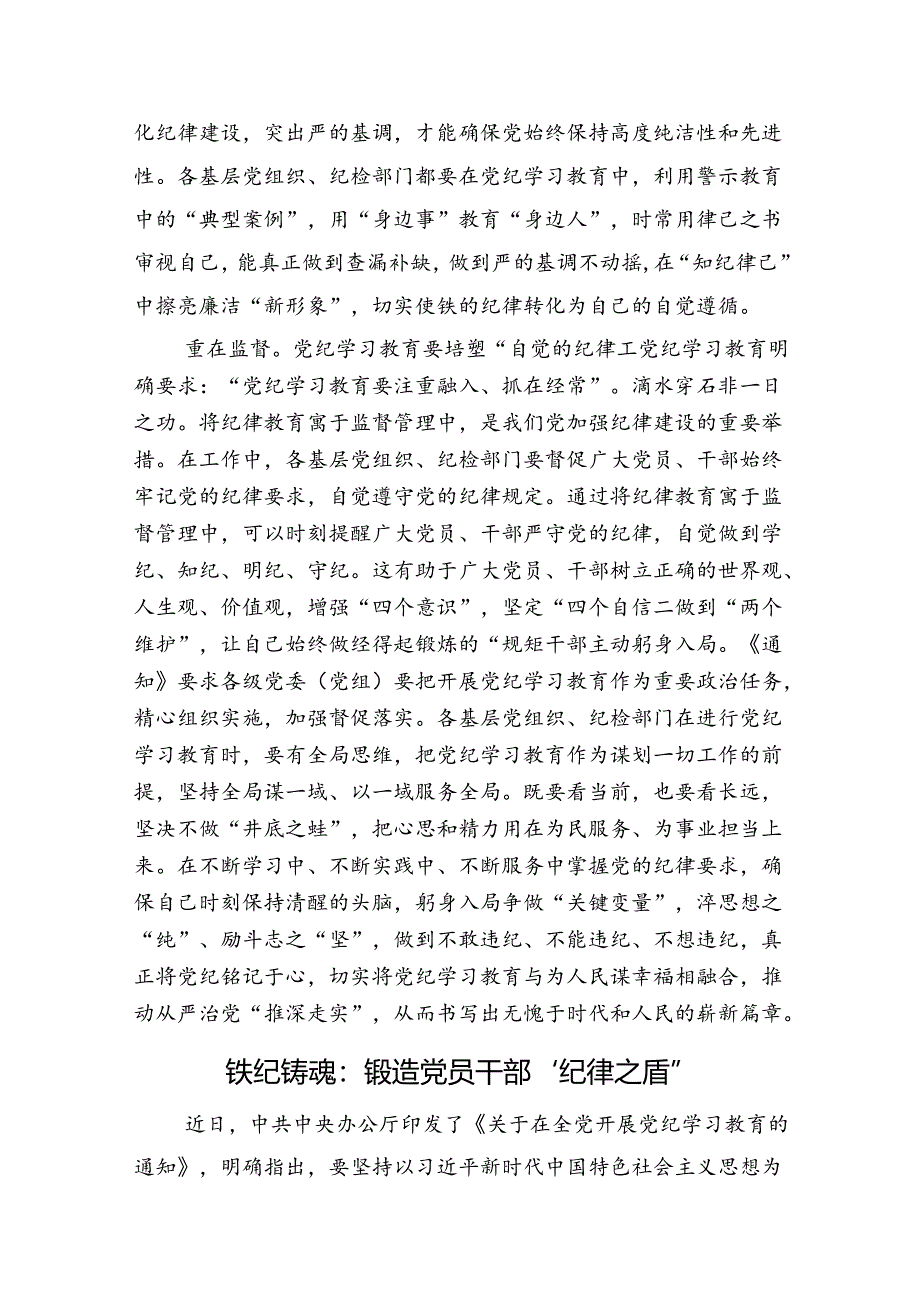 化纪律建设，突出严的基调，才能确保党始终保持高度纯洁性和先进
性。各基层党组织、纪检部门都要在党纪学习教育中，利用警示教育
中的“典型案例”，用“身边事”教育“身边人”，时常用律己之书
审视自己，能真正做到查漏补缺，做到严的基调不动摇，在“知纪律己”
中擦亮廉洁“新形象”，切实使铁的纪律转化为自己的自觉遵循。
重在监督。党纪学习教育要培塑“自觉的纪律工党纪学习教育明
确要求：“党纪学习教育要注重融入、抓在经常”。滴水穿石非一日
之功。将纪律教育寓于监督管理中，是我们党加强纪律建设的重要举
措。在工作中，各基层党组织、纪检部门要督促广大党员、干部始终
牢记党的纪律要求，自觉遵守党的纪律规定。通过将纪律教育寓于监
督管理中，可以时刻提醒广大党员、干部严守党的纪律，自觉做到学
纪、知纪、明纪、守纪。这有助于广大党员、干部树立正确的世界观、
人生观、价值观，增强“四个意识”，坚定“四个自信二做到“两个
维护”，让自己始终做经得起锻炼的“规矩干部主动躬身入局。《通
知》要求各级党委（党组）要把开展党纪学习教育作为重要政治任务，
精心组织实施，加强督促落实。各基层党组织、纪检部门在进行党纪
学习教育时，要有全局思维，把党纪学习教育作为谋划一切工作的前
提，坚持全局谋一域、以一域服务全局。既要看当前，也要看长远，
坚决不做“井底之蛙”，把心思和精力用在为民服务、为事业担当上
来。在不断学习中、不断实践中、不断服务中掌握党的纪律要求，确
保自己时刻保持清醒的头脑，躬身入局争做“关键变量”，淬思想之
“纯”、励斗志之“坚”，做到不敢违纪、不能违纪、不想违纪，真
正将党纪铭记于心，切实将党纪学习教育与为人民谋幸福相融合，推
动从严治党“推深走实”，从而书写出无愧于时代和人民的崭新篇章。
铁纪铸魂：锻造党员干部‘纪律之盾”
近日，中共中央办公厅印发了《关于在全党开展党纪学习教育的
通知》，明确指出，要坚持以习近平新时代中国特色社会主义思想为